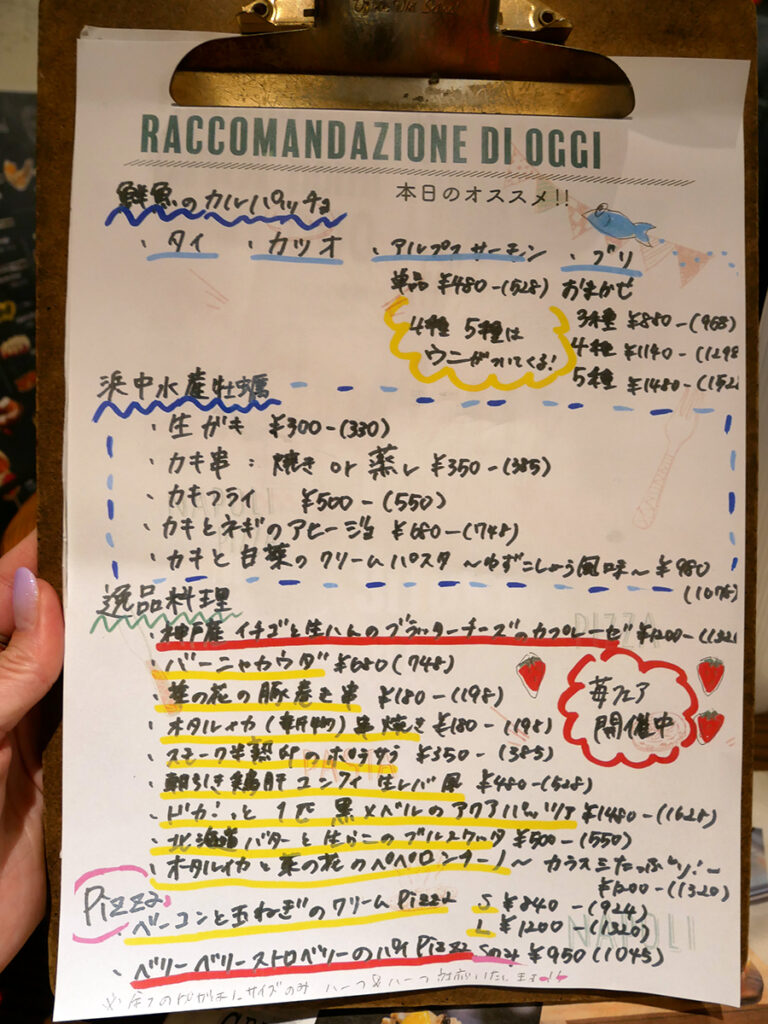 RACCOMANDAZIONE DI OGGI
本日のオススメ!!
鮮魚のカルパッチョ
・タイ ・カツオ ・アルプスサーモン ・ブリ
単品 ¥480-(528) おまかせ
3種 ¥880-(968)
4種 5種は
4種 ¥1180-(1298
ウニがついてくる!
5種 ¥1480-(152
浜中水産牡蠣
・生ガキ ¥300-(330)
・カキ串:焼き or 蒸し ¥350-(385)
・カキフライ ¥500-(550)
・カキとネギのアヒージョ ¥680-(748)
・カキと白菜のクリームパスタ ~ゆずこしょう風味~ ¥980
(1078)
逸品料理
・神戸産イチゴと生ハムのブラッターチーズのカプレーゼ ¥1200-(132
・バーニャカウダ ¥680(748)
・菜の花の豚巻き串 ¥180-(198)
苺フェア
開催中
・ホタルイカ(新物)串焼き ¥180-(198)
・スモーク半熟卵のポテサラ ¥350-(385)
・朝引き鶏肝コンフィ 生レバ風 ¥480-(528)
・ドカ!っと1匹 黒メバルのアクアパッツァ ¥1480-(1628)
・北海道バターと生うにのブルスケッタ ¥500-(550)
・ホタルイカと菜の花のペペロンチーノ~カラスミたっぷり!~
¥1200-(1320)
Pizza
・ベーコンと玉ねぎのクリームPizza S ¥840-(924)
L ¥1200-(1320)
・ベリーベリーストロベリーのパイPizza Sのみ ¥950(1045)
サイズのみ ハーフ&ハーフ
PIZZA
PASTA
NAPOLI